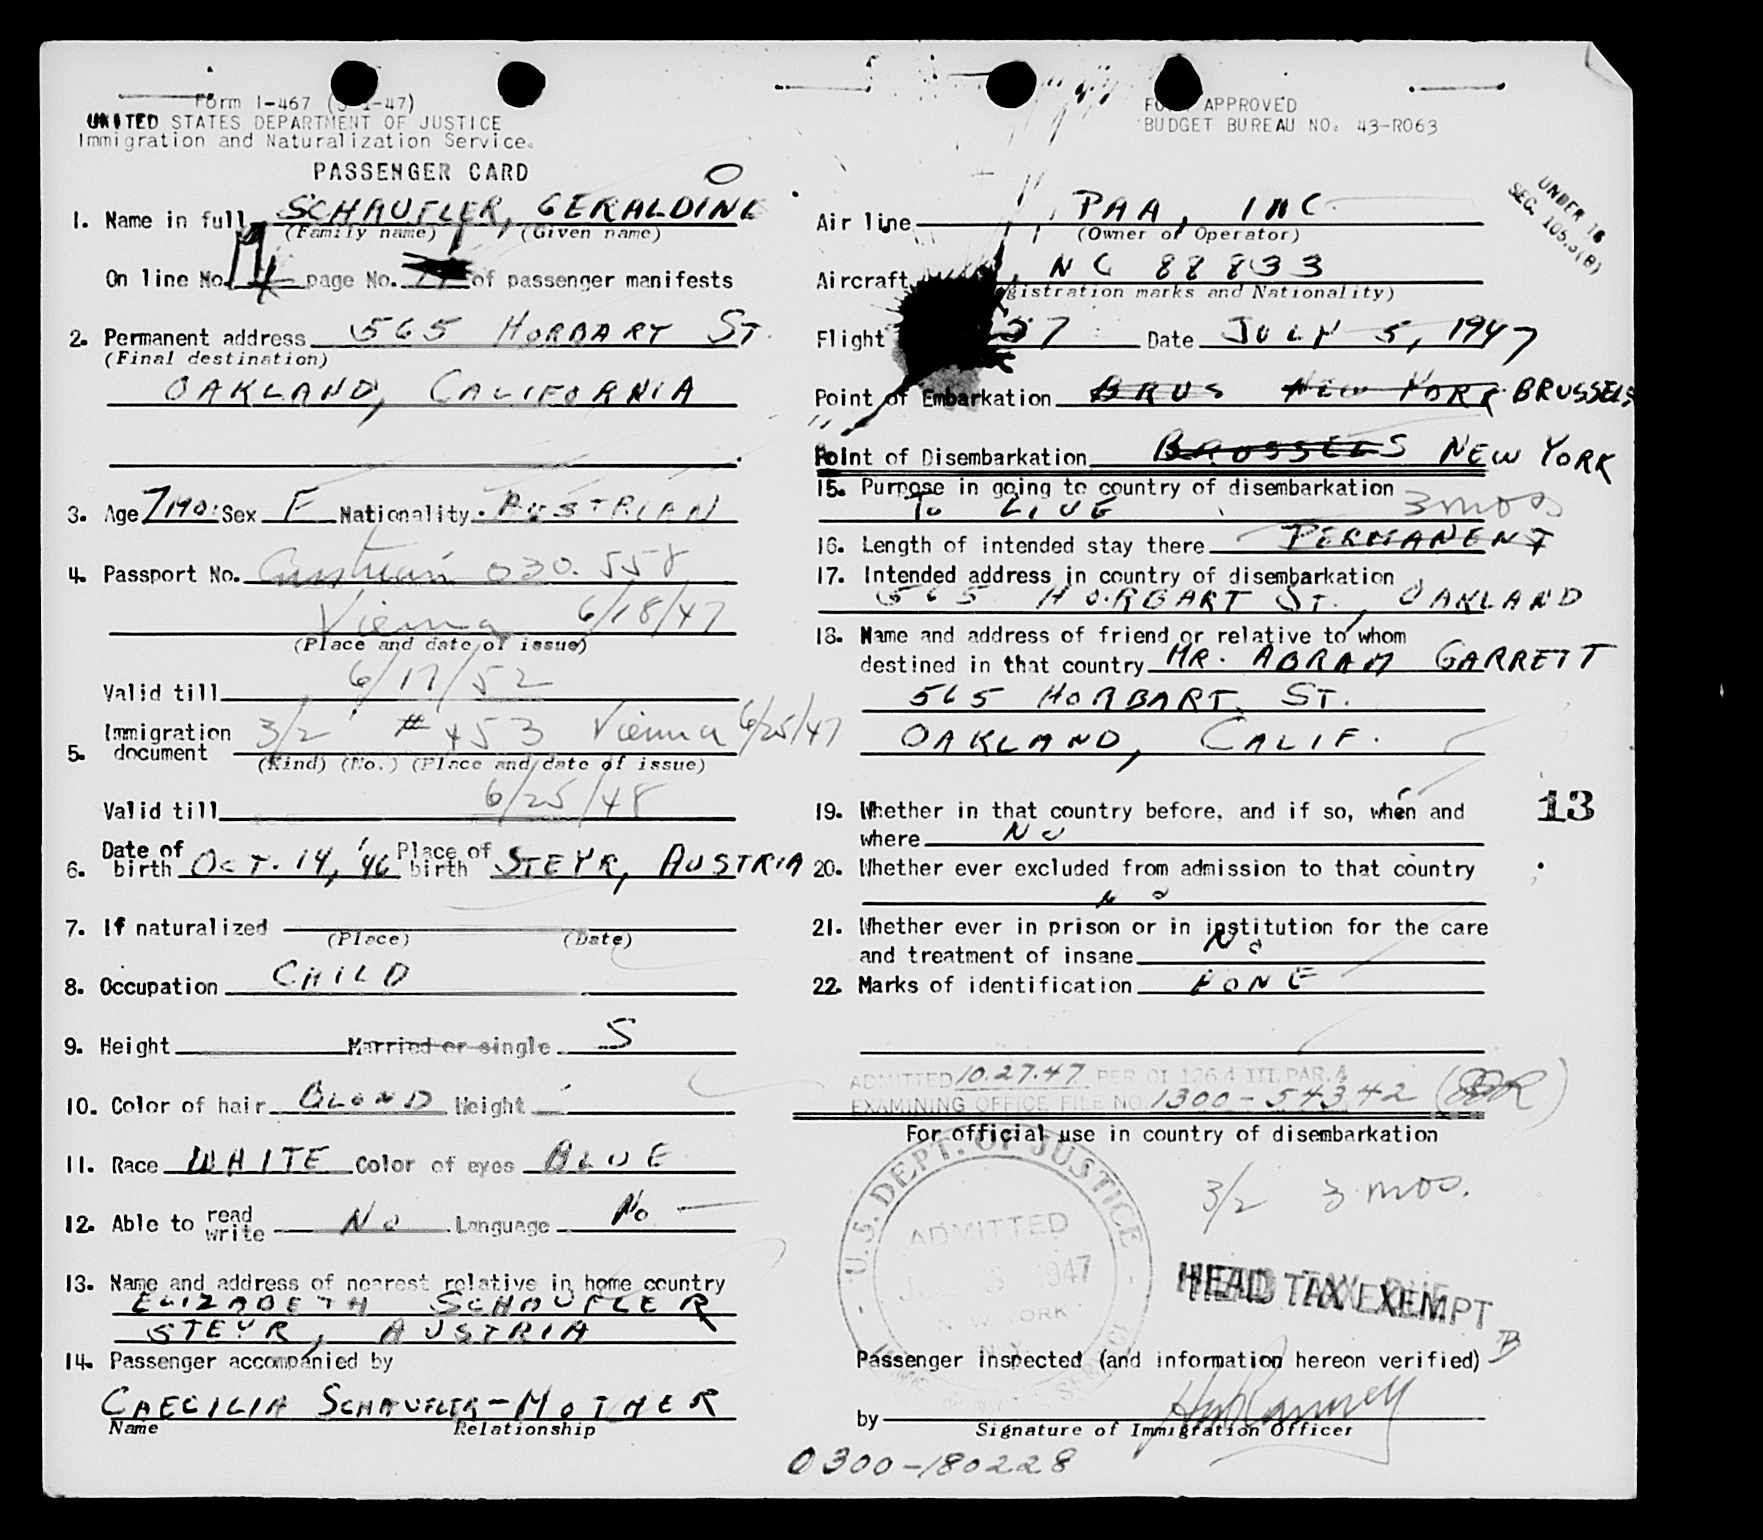 Form I-467 (
UNITED STATES DEPARTMENT OF JUSTICE
Immigration and Naturalization Service.
PASSENGER CARD
1. Name in full SCHAUFLER, GERALDINE
(Family name) (Given name)
On line No. 4 page No. of passenger manifests
2. Permanent address 565 HORBART ST.
(Final destination)
OAKLAND, CALIFORNIA
3. Age 7 mo. Sex F Nationality AUSTRIAN
4. Passport No. Austrian 030.558
Vienna 6/18/47
(Place and date of issue)
Valid till 6/17/52
Immigration
5. document 3/2 #453 Vienna 6/25/47
(Kind) (No.) (Place and date of issue)
Valid till 6/25/48
6. Date of birth OCT. 14, '46 Place of birth STEYR, AUSTRIA
7. If naturalized
(Place) (Date)
8. Occupation CHILD
9. Height Married or single S
10. Color of hair BLOND Weight
11. Race WHITE Color of eyes BLUE
12. Able to read write No Language No
13. Name and address of nearest relative in home country
ELIZABETH SCHAUFLER
STEYR, AUSTRIA
14. Passenger accompanied by
CAECILIA SCHAUFLER-MOTHER
Name Relationship
FORM APPROVED
BUDGET BUREAU NO. 43-R063
UNDER 16
SEC. 105.3(B)
Air line PAA, INC
(Owner or Operator)
Aircraft NC 88833
(Registration marks and Nationality)
Flight 57 Date JULY 5, 1947
Point of Embarkation BRUS NEW YORK BRUSSELS
Point of Disembarkation BRUSSELS NEW YORK
15. Purpose in going to country of disembarkation
TO LIVE 3 mos
16. Length of intended stay there PERMANENT
17. Intended address in country of disembarkation
565 HORBART ST., OAKLAND
18. Name and address of friend or relative to whom
destined in that country MR. ABRAM GARRETT
565 HORBART ST.
OAKLAND, CALIF.
19. Whether in that country before, and if so, when and
where NO
13
20. Whether ever excluded from admission to that country
NO
21. Whether ever in prison or in institution for the care
and treatment of insane NO
22. Marks of identification NONE
ADMITTED 10.27.47 PER OI 126.4 III.PAR.4
EXAMINING OFFICE FILE NO. 1300-54342
For official use in country of disembarkation
U.S. DEPT. OF JUSTICE
ADMITTED
1947
NEW YORK
N.Y.
3/2 3 mos.
HEAD TAX EXEMPT
Passenger inspected (and information hereon verified)
by
Signature of Immigration Officer
0300-180228